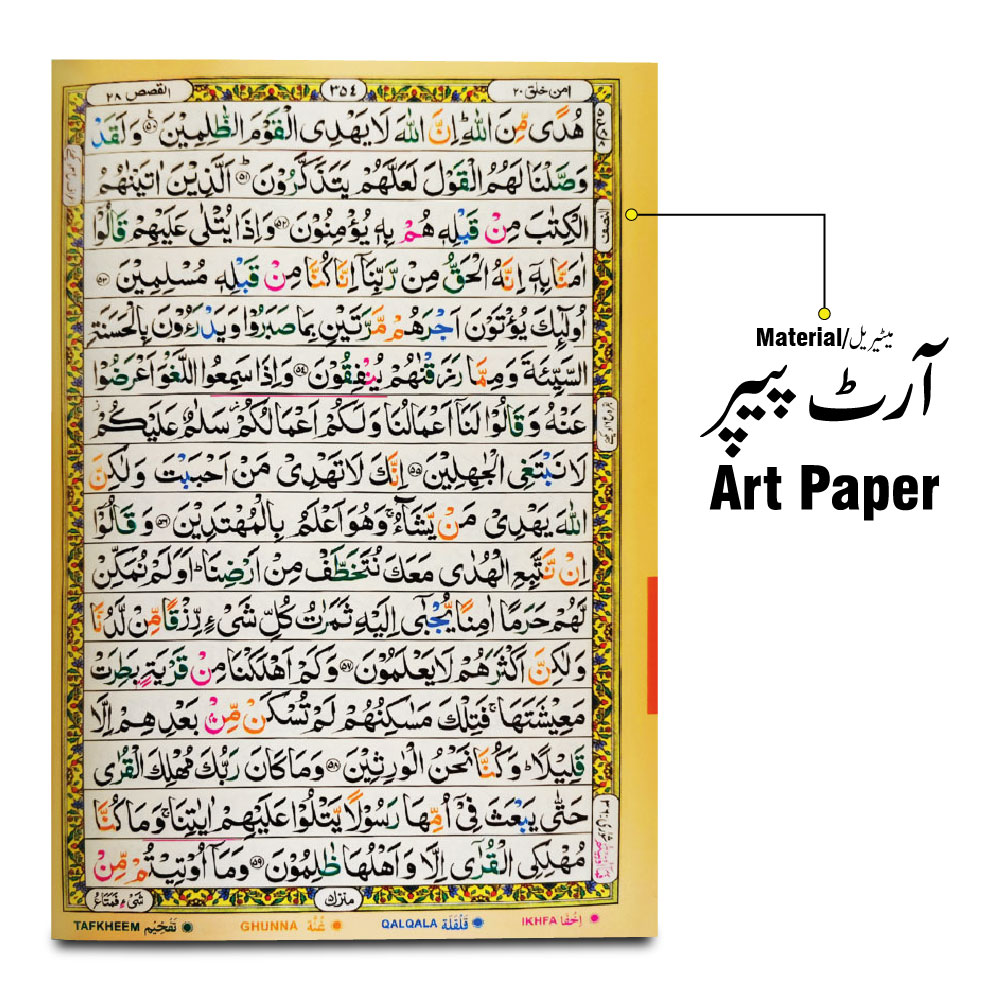 امن خلق ۲۰
۳۵۴
القصص ۲۸
هُدًى مِّنَ اللّٰهِ ؕ اِنَّ اللّٰهَ لَا يَهْدِى الْقَوْمَ الظّٰلِمِيْنَ ۵۰ وَلَقَدْ
وَصَّلْنَا لَهُمُ الْقَوْلَ لَعَلَّهُمْ يَتَذَكَّرُوْنَ ۵۱ ؕ اَلَّذِيْنَ اٰتَيْنٰهُمُ
الْكِتٰبَ مِنْ قَبْلِهٖ هُمْ بِهٖ يُؤْمِنُوْنَ ۵۲ وَاِذَا يُتْلٰى عَلَيْهِمْ قَالُوْۤا
النصف
اٰمَنَّا بِهٖۤ اِنَّهُ الْحَقُّ مِنْ رَّبِّنَاۤ اِنَّا كُنَّا مِنْ قَبْلِهٖ مُسْلِمِيْنَ ۵۳
اُولٰٓئِكَ يُؤْتَوْنَ اَجْرَهُمْ مَّرَّتَيْنِ بِمَا صَبَرُوْا وَيَدْرَءُوْنَ بِالْحَسَنَةِ
السَّيِّئَةَ وَمِمَّا رَزَقْنٰهُمْ يُنْفِقُوْنَ ۵۴ وَاِذَا سَمِعُوا اللَّغْوَ اَعْرَضُوْا
عَنْهُ وَقَالُوْا لَنَاۤ اَعْمَالُنَا وَلَكُمْ اَعْمَالُكُمْ سَلٰمٌ عَلَيْكُمْ
لَا نَبْتَغِى الْجٰهِلِيْنَ ۵۵ اِنَّكَ لَا تَهْدِىْ مَنْ اَحْبَبْتَ وَلٰكِنَّ
اللّٰهَ يَهْدِىْ مَنْ يَّشَآءُ ۚ وَهُوَ اَعْلَمُ بِالْمُهْتَدِيْنَ ۵۶ وَقَالُوْۤا
اِنْ نَّتَّبِعِ الْهُدٰى مَعَكَ نُتَخَطَّفْ مِنْ اَرْضِنَا ؕ اَوَلَمْ نُمَكِّنْ
لَّهُمْ حَرَمًا اٰمِنًا يُّجْبٰٓى اِلَيْهِ ثَمَرٰتُ كُلِّ شَىْءٍ رِّزْقًا مِّنْ لَّدُنَّا
وَلٰكِنَّ اَكْثَرَهُمْ لَا يَعْلَمُوْنَ ۵۷ وَكَمْ اَهْلَكْنَا مِنْ قَرْيَةٍۭ بَطِرَتْ
مَعِيْشَتَهَا ۚ فَتِلْكَ مَسٰكِنُهُمْ لَمْ تُسْكَنْ مِّنْۢ بَعْدِهِمْ اِلَّا
قَلِيْلًا ؕ وَكُنَّا نَحْنُ الْوٰرِثِيْنَ ۵۸ وَمَا كَانَ رَبُّكَ مُهْلِكَ الْقُرٰى
حَتّٰى يَبْعَثَ فِىْۤ اُمِّهَا رَسُوْلًا يَّتْلُوْا عَلَيْهِمْ اٰيٰتِنَا ۚ وَمَا كُنَّا
مُهْلِكِى الْقُرٰٓى اِلَّا وَاَهْلُهَا ظٰلِمُوْنَ ۵۹ وَمَاۤ اُوْتِيْتُمْ مِّنْ
شَىْءٍ فَمَتَاعُ
منزل ۵
IKHFA اِخْفَا
QALQALA قَلْقَلَة
GHUNNA غُنَّة
TAFKHEEM تَفْخِيْم
Material/میٹیریل
آرٹ پیپر
Art Paper